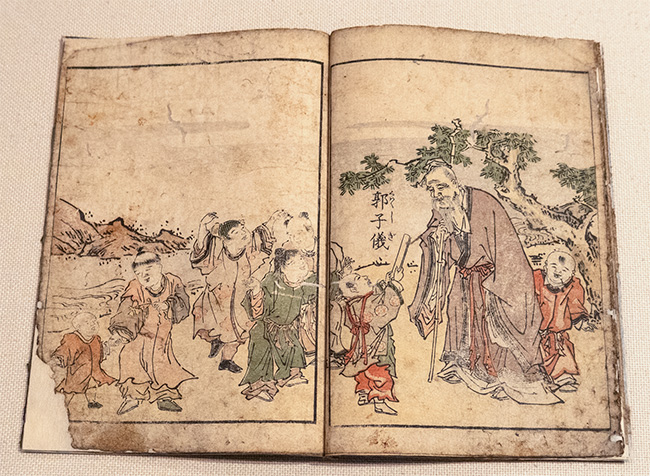 郭子儀